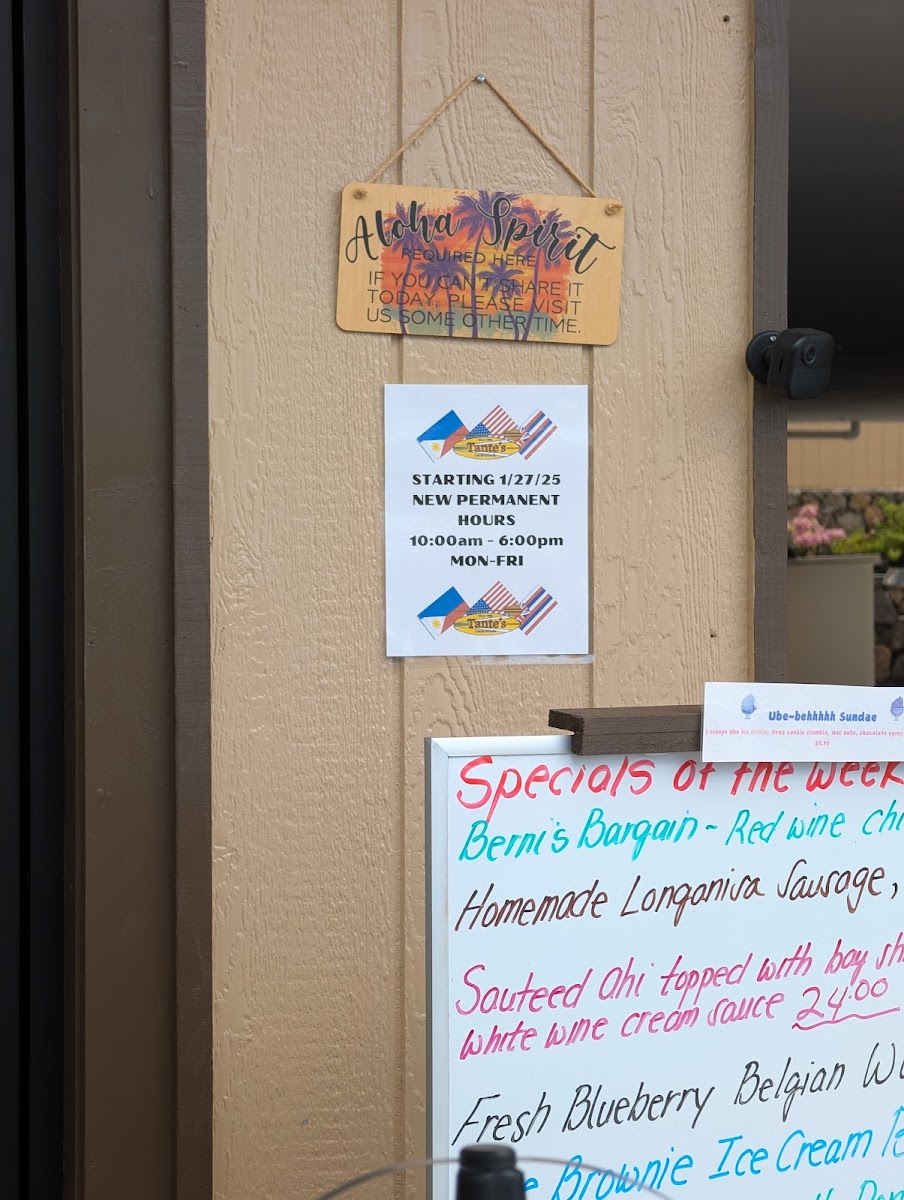 Aloha Spirit
REQUIRED HERE
IF YOU CAN'T SHARE IT
TODAY, PLEASE VISIT
US SOME OTHER TIME.
Tante's
STARTING 1/27/25
NEW PERMANENT
HOURS
10:00am - 6:00pm
MON-FRI
Tante's
Ube-behhhhh Sundae
2 scoops Ube ice cream, Oreo cookie crumble, mac nuts, chocolate syrup
Specials of the Week
Berni's Bargain - Red wine
Homemade Longanisa Sausage,
Sauteed ahi topped with bay
white wine cream sauce 24.00
Fresh Blueberry Belgian
Brownie Ice Cream